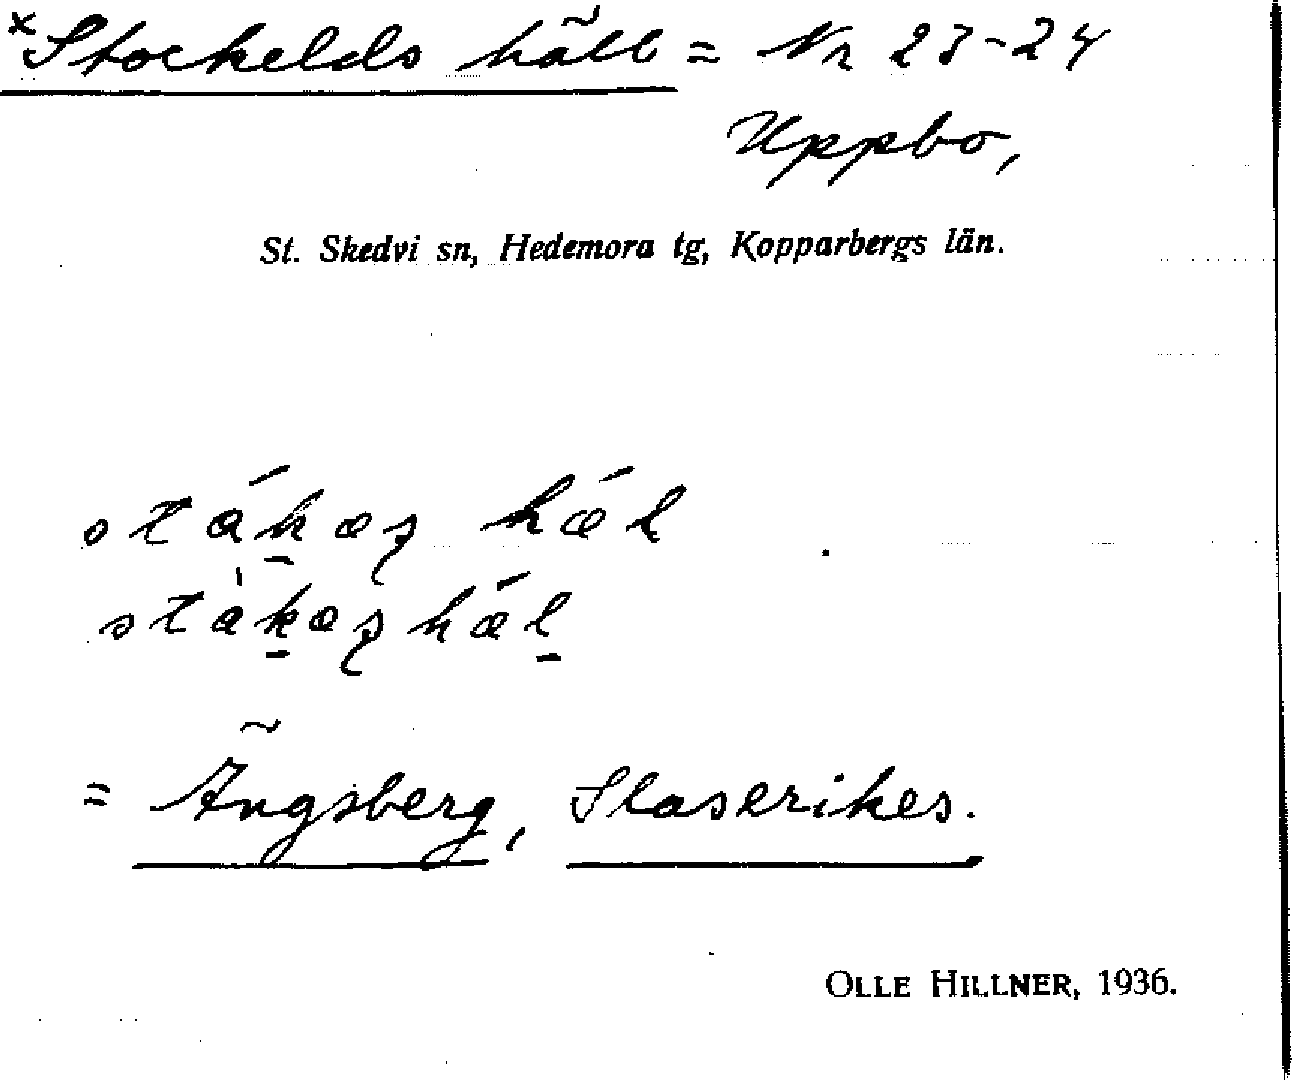 *Stockelds häll = Nr 23-24
Uppbo,
St. Skedvi sn, Hedemora tg, Kopparbergs län.
= Ängsberg, Slaserikes.
OLLE HILLNER, 1936.